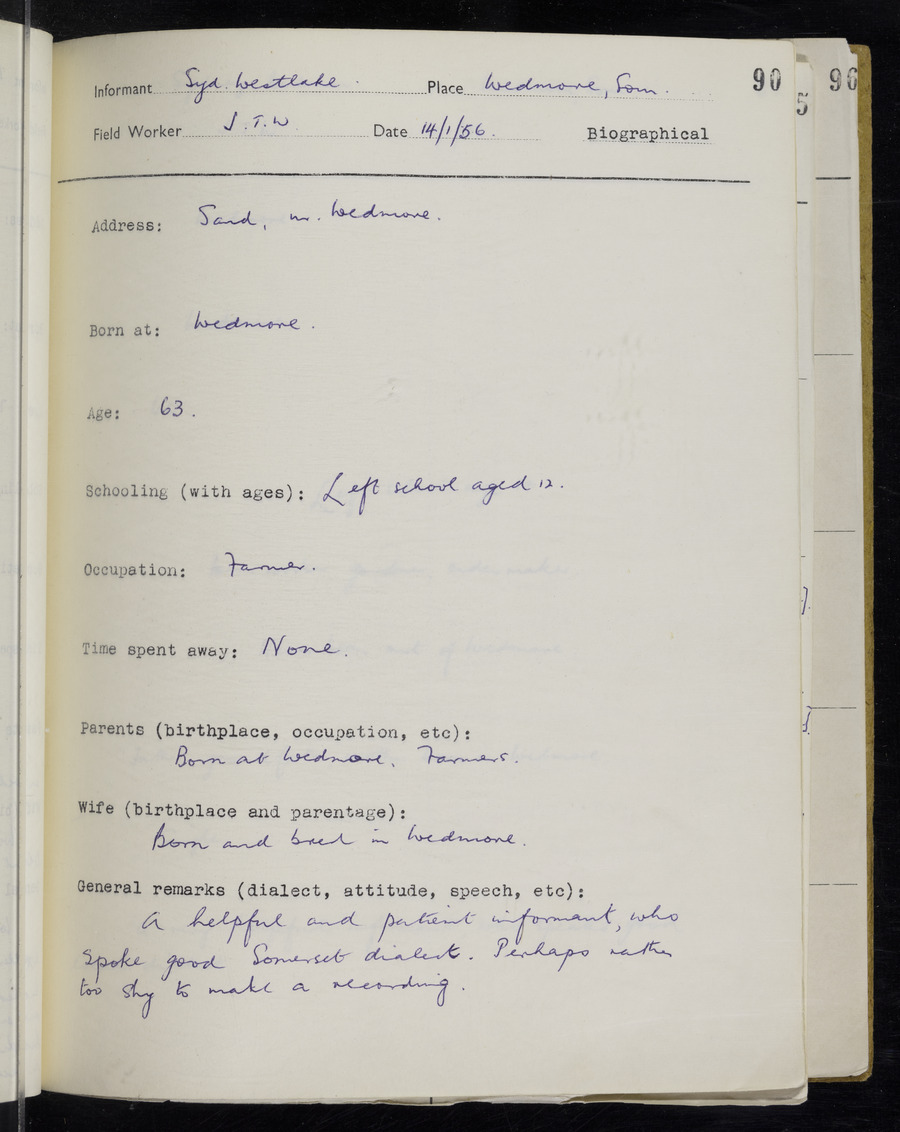 Informant Syd. Westlake. Place Wedmore, Som. 90
Field Worker J.T.W Date 14/1/56. Biographical
Address: Sand, nr. Wedmore.
Born at: Wedmore.
Age: 63.
Schooling (with ages): Left school aged 12.
Occupation: Farmer.
Time spent away: None.
Parents (birthplace, occupation, etc):
Born at Wedmore. Farmers.
Wife (birthplace and parentage):
Born and bred in Wedmore.
General remarks (dialect, attitude, speech, etc):
A helpful and patient informant, who
spoke good Somerset dialect. Perhaps rather
too shy to make a recording.
96
5